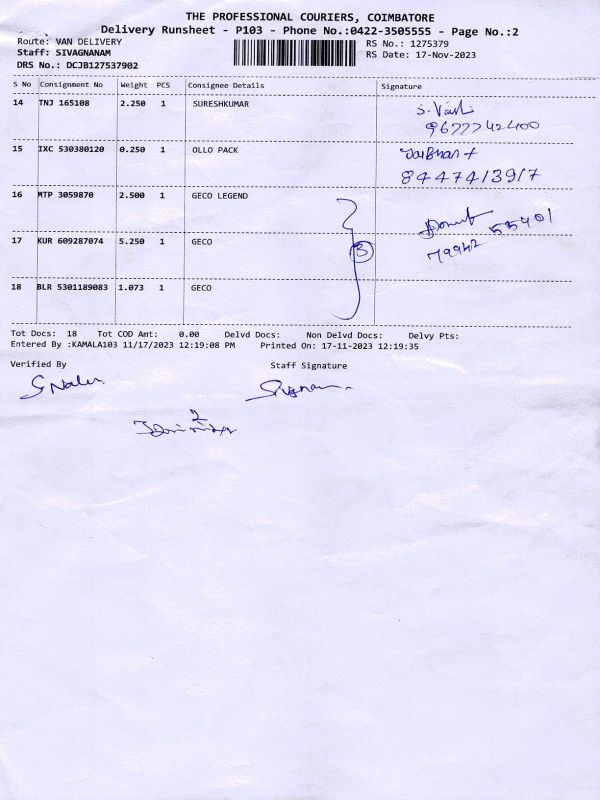 THE PROFESSIONAL COURIERS, COIMBATORE
Delivery Runsheet - P103 - Phone No.:0422-3505555 - Page No.:2
Route: VAN DELIVERY RS No.: 1275379
Staff: SIVAGNANAM RS Date: 17-Nov-2023
DRS No.: DCJB127537902
S No Consignment No Weight PCS Consignee Details Signature
14 TNJ 165108 2.250 1 SURESHKUMAR
9677742400
15 IXC 530380120 0.250 1 OLLO PACK
8447413917
16 MTP 3059870 2.500 1 GECO LEGEND
79942 55401
17 KUR 609287074 5.250 1 GECO
3
18 BLR 5301189083 1.073 1 GECO
Tot Docs: 18 Tot COD Amt: 0.00 Delvd Docs: Non Delvd Docs: Delvy Pts:
Entered By :KAMALA103 11/17/2023 12:19:08 PM Printed On: 17-11-2023 12:19:35
Verified By Staff Signature